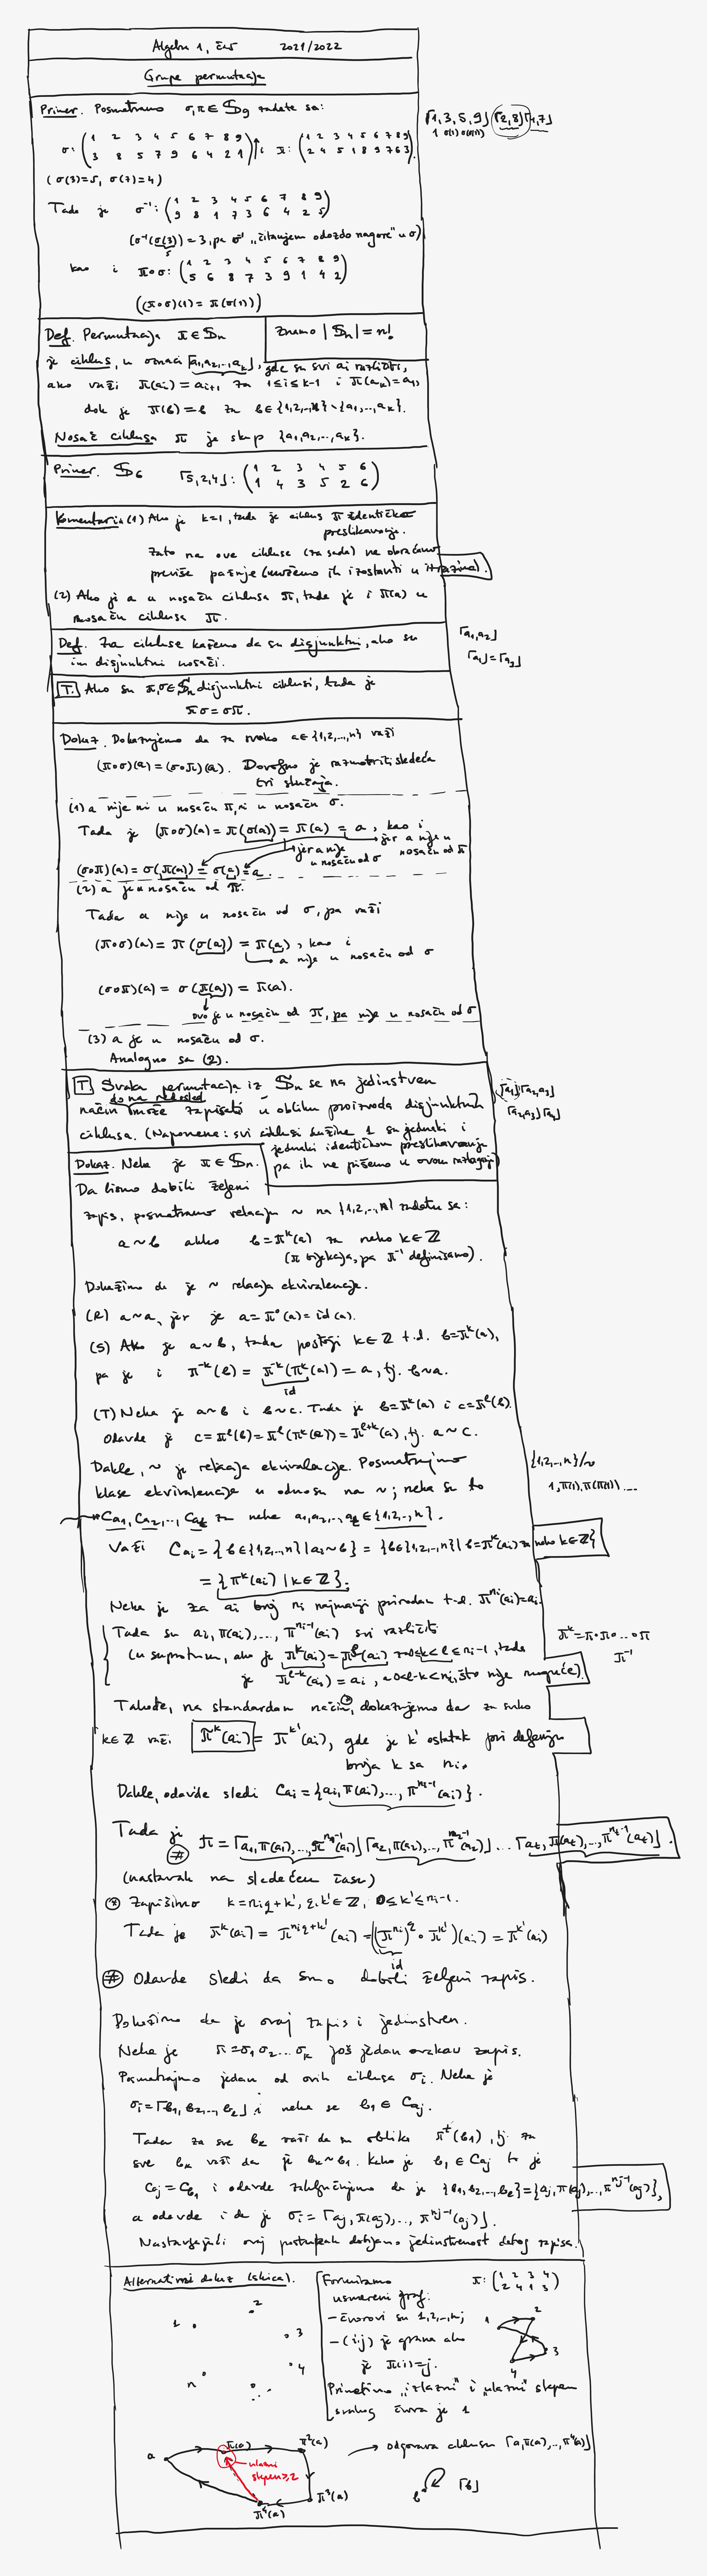 Algebra 1, čas 2021/2022
Grupe permutacija
Primer. Posmatramo σ,π∈𝕊₉ zadate sa:
⌈1,3,5,9⌋⌈2,8⌋⌈4,7⌋
1 σ(1) σ(σ(1))
σ: (1 2 3 4 5 6 7 8 9 / 3 8 5 7 9 6 4 2 1) i π: (1 2 3 4 5 6 7 8 9 / 2 4 5 1 8 9 7 6 3).
(σ(3)=5, σ(7)=4)
Tada je σ⁻¹: (1 2 3 4 5 6 7 8 9 / 9 8 1 7 3 6 4 2 5)
(σ⁻¹(σ(3)) = 3, pa σ⁻¹ „čitanjem odozdo nagore" u σ)
5
kao i π∘σ: (1 2 3 4 5 6 7 8 9 / 5 6 8 7 3 9 1 4 2)
((π∘σ)(1) = π(σ(1)))
Def. Permutacija π∈𝕊ₙ
Znamo |𝕊ₙ| = n!
je ciklus, u oznaci ⌈a₁,a₂,..,aₖ⌋, gde su svi aᵢ različiti,
ako važi π(aᵢ) = aᵢ₊₁ za 1≤i≤k-1 i π(aₖ)=a₁,
dok je π(b) = b za b∈{1,2,..,n}∖{a₁,..,aₖ}.
Nosač ciklusa π je skup {a₁,a₂,..,aₖ}.
Primer. 𝕊₆ ⌈5,2,4⌋: (1 2 3 4 5 6 / 1 4 3 5 2 6)
Komentari: (1) Ako je k=1, tada je ciklus π identičko
preslikavanje.
Zato na ove cikluse (za sada) ne obraćamo
previše pažnje (možemo ih izostaviti u zapisima).
(2) Ako je a u nosaču ciklusa π, tada je i π(a) u
nosaču ciklusa π.
Def. Za cikluse kažemo da su disjunktni, ako su
im disjunktni nosači.
⌈a₁,a₂⌋
⌈a₁⌋=⌈a₂⌋
T. Ako su π,σ∈𝕊ₙ disjunktni ciklusi, tada je
πσ = σπ.
Dokaz. Dokazujemo da za svako a∈{1,2,..,n} važi
(π∘σ)(a) = (σ∘π)(a). Dovoljno je razmotriti sledeća
tri slučaja.
(1) a nije ni u nosaču π, ni u nosaču σ.
Tada je (π∘σ)(a) = π(σ(a)) = π(a) = a, kao i
jer a nije u nosaču od σ
jer a nije u nosaču od π
(σ∘π)(a) = σ(π(a)) = σ(a) = a.
(2) a je u nosaču od π.
Tada a nije u nosaču od σ, pa važi
(π∘σ)(a) = π(σ(a)) = π(a), kao i
a nije u nosaču od σ
(σ∘π)(a) = σ(π(a)) = π(a).
ovo je u nosaču od π, pa nije u nosaču od σ
(3) a je u nosaču od σ.
Analogno sa (2).
T. Svaka permutacija iz 𝕊ₙ se na jedinstven
do na redosled
način može zapisati u obliku proizvoda disjunktnih
ciklusa. (Napomena: svi ciklusi dužine 1 su jednaki i
jednaki identičkom preslikavanju
pa ih ne pišemo u ovom razlaganju)
⌈a₁⌋⌈a₂,a₃⌋
⌈a₂,a₃⌋⌈a₁⌋
Dokaz. Neka je π∈𝕊ₙ.
Da bismo dobili željeni
zapis, posmatramo relaciju ~ na {1,2,..,n} zadatu sa:
a ~ b akko b=πᵏ(a) za neko k∈ℤ
(π bijekcija, pa π⁻¹ definisano).
Dokažimo da je ~ relacija ekvivalencije.
(R) a~a, jer je a=π⁰(a)=id(a).
(S) Ako je a~b, tada postoji k∈ℤ t.d. b=πᵏ(a),
pa je i π⁻ᵏ(b) = π⁻ᵏ(πᵏ(a)) = a, tj. b~a.
id
(T) Neka je a~b i b~c. Tada je b=πᵏ(a) i c=πˡ(b).
Odavde je c=πˡ(b)=πˡ(πᵏ(a))=πˡ⁺ᵏ(a), tj. a~c.
Dakle, ~ je relacija ekvivalencije. Posmatrajmo
klase ekvivalencije u odnosu na ~; neka su to
{1,2,..,n}/~
1, π(1), π(π(1)) ....
C_{a₁}, C_{a₂},.., C_{aₜ} za neke a₁,a₂,..,aₜ∈{1,2,..,n}.
Važi C_{aᵢ} = {b∈{1,2,..,n} | aᵢ~b} = {b∈{1,2,..,n} | b=πᵏ(aᵢ) za neko k∈ℤ}
= {πᵏ(aᵢ) | k∈ℤ}.
Neka je za aᵢ broj nᵢ najmanji prirodan t.d. π^{nᵢ}(aᵢ)=aᵢ.
Tada su aᵢ, π(aᵢ),..., π^{nᵢ-1}(aᵢ) svi različiti
(u suprotnom, ako je πᵏ(aᵢ)=πˡ(aᵢ) za 0≤k<l≤nᵢ-1, tada
je πˡ⁻ᵏ(aᵢ) = aᵢ, a 0<l-k<nᵢ, što nije moguće).
πᵏ=π∘π∘...∘π
π⁻¹
Takođe, na standardan način⊛, dokazujemo da za svako
k∈ℤ važi πᵏ(aᵢ) = π^{k'}(aᵢ), gde je k' ostatak pri deljenju
broja k sa nᵢ.
Dakle, odavde sledi C_{aᵢ} = {aᵢ,π(aᵢ),..., π^{nᵢ-1}(aᵢ)}.
Tada je
# π = ⌈a₁,π(a₁),..,π^{n₁-1}(a₁)⌋⌈a₂,π(a₂),..,π^{n₂-1}(a₂)⌋ ... ⌈aₜ,π(aₜ),..,π^{nₜ-1}(aₜ)⌋.
(nastavak na sledećem času)
⊛ Zapišimo k=nᵢq+k', q,k'∈ℤ, 0≤k'≤nᵢ-1.
Tada je πᵏ(aᵢ) = π^{nᵢq+k'}(aᵢ) = ((π^{nᵢ})^q ∘ π^{k'})(aᵢ) = π^{k'}(aᵢ)
id
# Odavde sledi da smo dobili željeni zapis.
Dokažimo da je ovaj zapis i jedinstven.
Neka je π=σ₁σ₂...σₖ još jedan ovakav zapis.
Posmatrajmo jedan od ovih ciklusa σᵢ. Neka je
σᵢ=⌈b₁,b₂,..,bₗ⌋ i neka je b₁∈C_{aⱼ}.
Tada za sve bₖ važi da su oblika πᵗ(b₁), tj. za
sve bₖ važi da je bₖ~b₁. Kako je b₁∈C_{aⱼ} to je
C_{aⱼ}=C_{b₁} i odavde zaključujemo da je {b₁,b₂,..,bₗ}={aⱼ,π(aⱼ),..,π^{nⱼ-1}(aⱼ)},
a odavde i da je σᵢ=⌈aⱼ,π(aⱼ),..,π^{nⱼ-1}(aⱼ)⌋.
Nastavljajući ovaj postupak dobijamo jedinstvenost datog zapisa.
Alternativni dokaz (skica).
1 2 3 4 n
Formiramo
usmereni graf:
- čvorovi su 1,2,..,n;
- (i,j) je grana ako
je π(i)=j.
Primetimo „izlazni" i „ulazni" stepen
svakog čvora je 1
π: (1 2 3 4 / 2 4 1 3)
1 2 3 4
a π(a) π²(a) π³(a) π⁴(a)
ulazni
stepen≥2
→ odgovara ciklusu ⌈a,π(a),..,π⁴(a)⌋
b ⌈b⌋